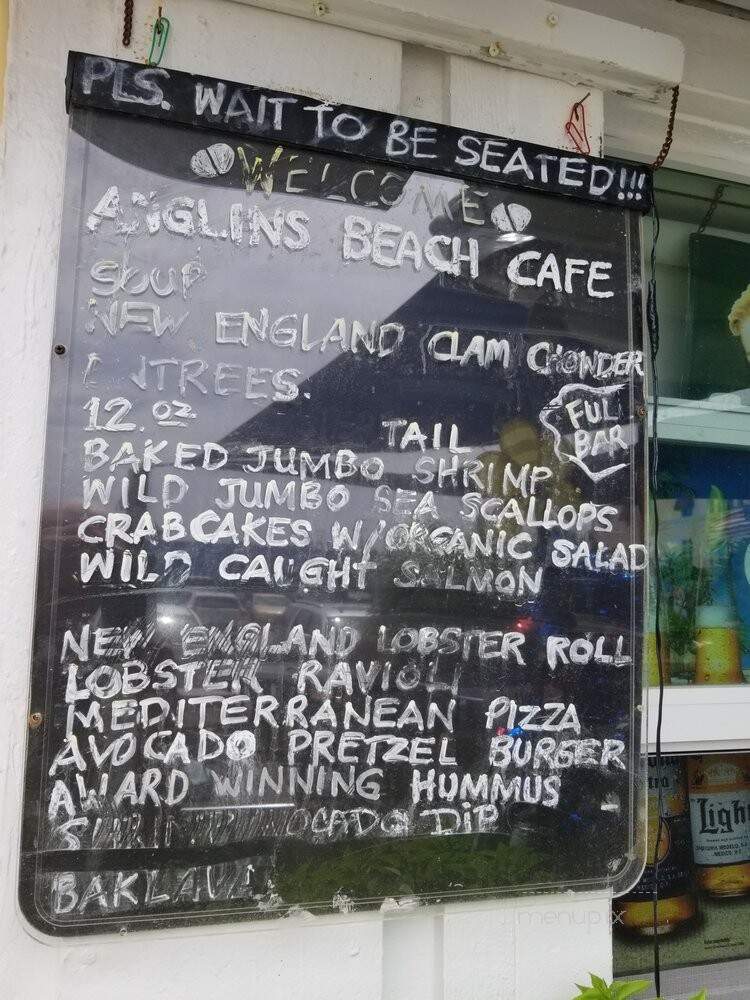 PLS. WAIT TO BE SEATED!!!
WELCOME
ANGLINS BEACH CAFE
SOUP
NEW ENGLAND CLAM CHOWDER
NTREES.
12. OZ TAIL
FUL BAR
BAKED JUMBO SHRIMP
WILD JUMBO SEA SCALLOPS
CRABCAKES W/ORGANIC SALAD
WILD CAUGHT SALMON
NEW ENGLAND LOBSTER ROLL
LOBSTER RAVIOLI
MEDITERRANEAN PIZZA
AVOCADO PRETZEL BURGER
AWARD WINNING HUMMUS
DIP
BAKLAVA
Light
menupix